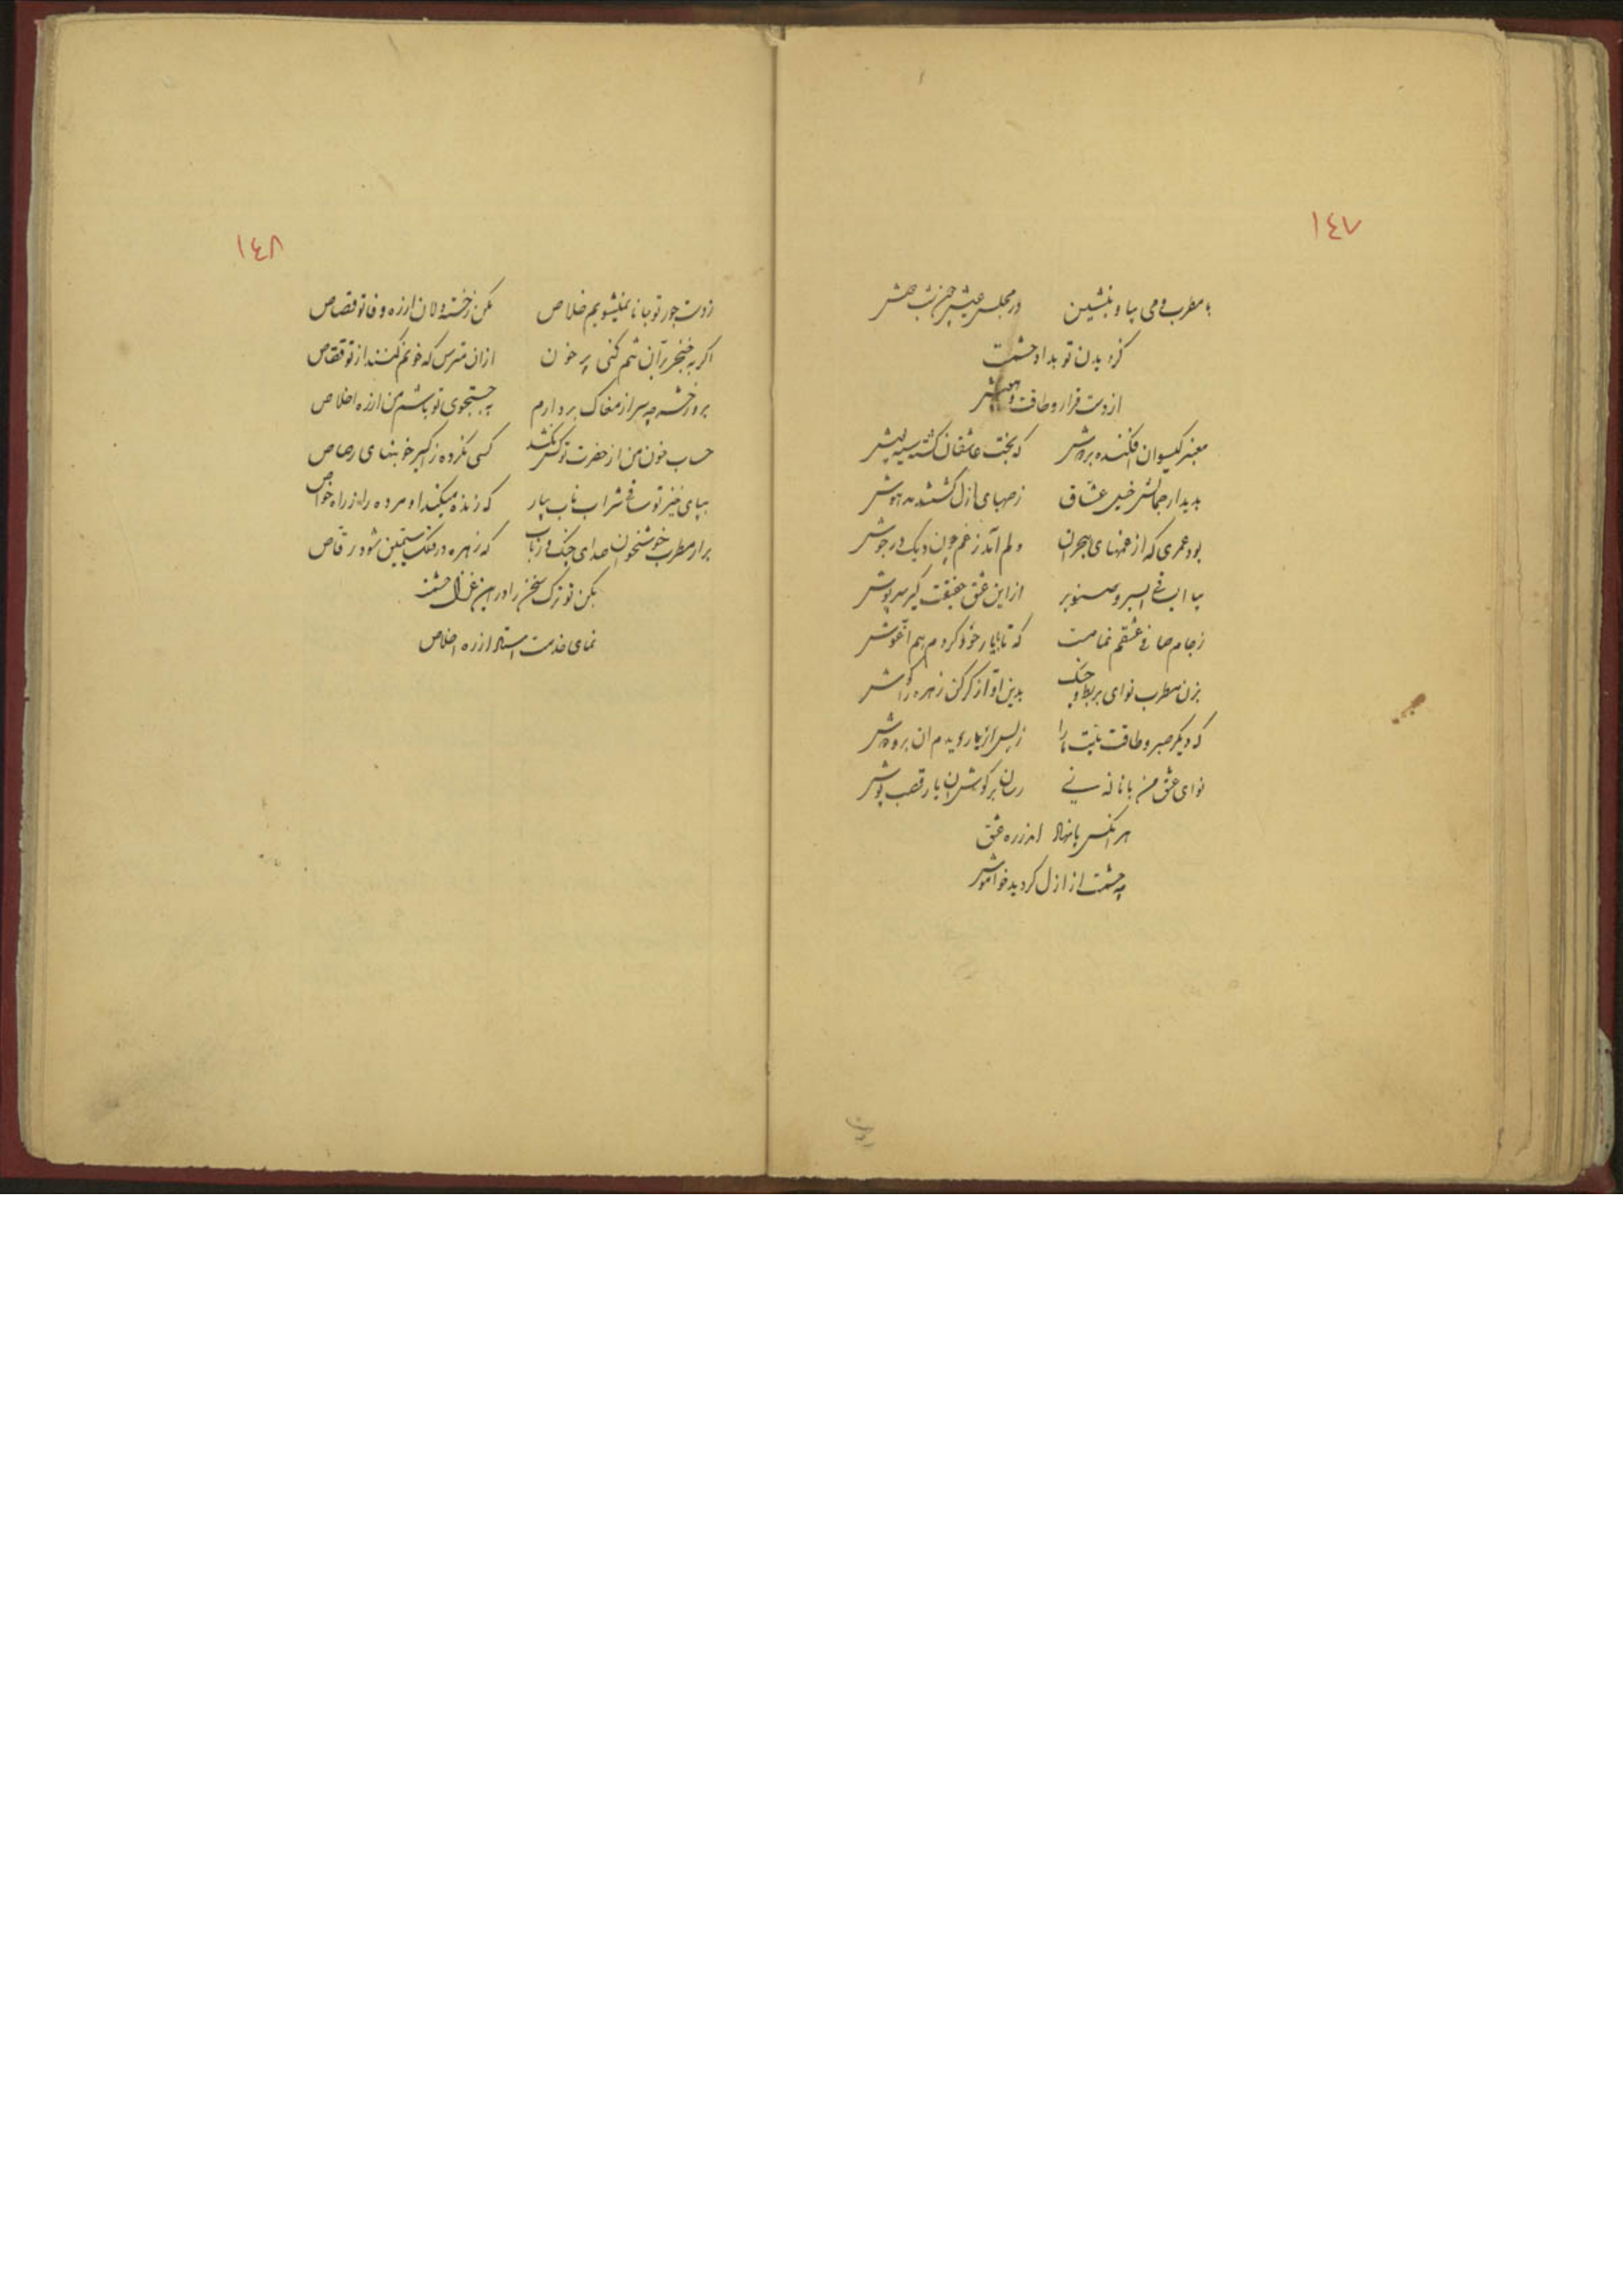 ١٤٧
با مطرب و می بیا و بنشین در مجلس عیش
از دست قرار و طاقت و
معنبر گیسوان افکنده بر دوش که بخت عاشقان گشته سیه پوش
بدیدار جمالش خیل عشاق ز صهبای ازل گشتند مدهوش
بود عمری که از غمهای هجران دلم آمد ز غم چون دیک در جوش
بیا از این عشق حقیقت گیر سرپوش
ز جام صافی عشقم نما مست که تا با یار خود کردم هم آغوش
بزن مطرب نوای بربط و چنگ بدین آواز کر کن زهره را گوش
که دیکر صبر و طاقت نیست ما را
نوای عشق من با ناله نی رسان بر گوش آن یار قصب پوش
هر آنکس پا نهاد اندر ره عشق
چه حشمت از ازل کردید خواموش
١٤٨
ز دست جور تو جانا نمیشویم خلاص مکن ز خسته دلان از ره وفا تو قصاص
اگر به خنجر بران تنم کنی پر خون از آن مترس که خونم کنند از تو قصاص
بروز حشر چه سر از مغاک بردارم به جستجوی تو باشم من از ره اخلاص
حساب خون من از حضرت تو کس نکشد کسی نکرده ز کس خونبهای رصاص
بپای خیز تو ساقی شراب ناب بیار که زنده میکند او مرده را ز راه خواص
برآر مطرب خوشخوان صدای چنگ و رباب که زهره در فلک سیّمین شود رقاص
بکن تو ترک سخن را در این غزل حشمت
نمای خدمت استاد از ره اخلاص